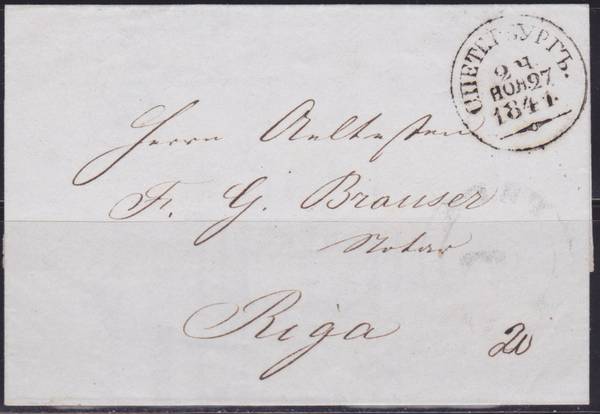 С.ПЕТЕРБУРГЪ.
2 Ч.
НОЯ.27
1841.
Herrn Aeltesten
F. G. Brauser
Notar
Riga
20